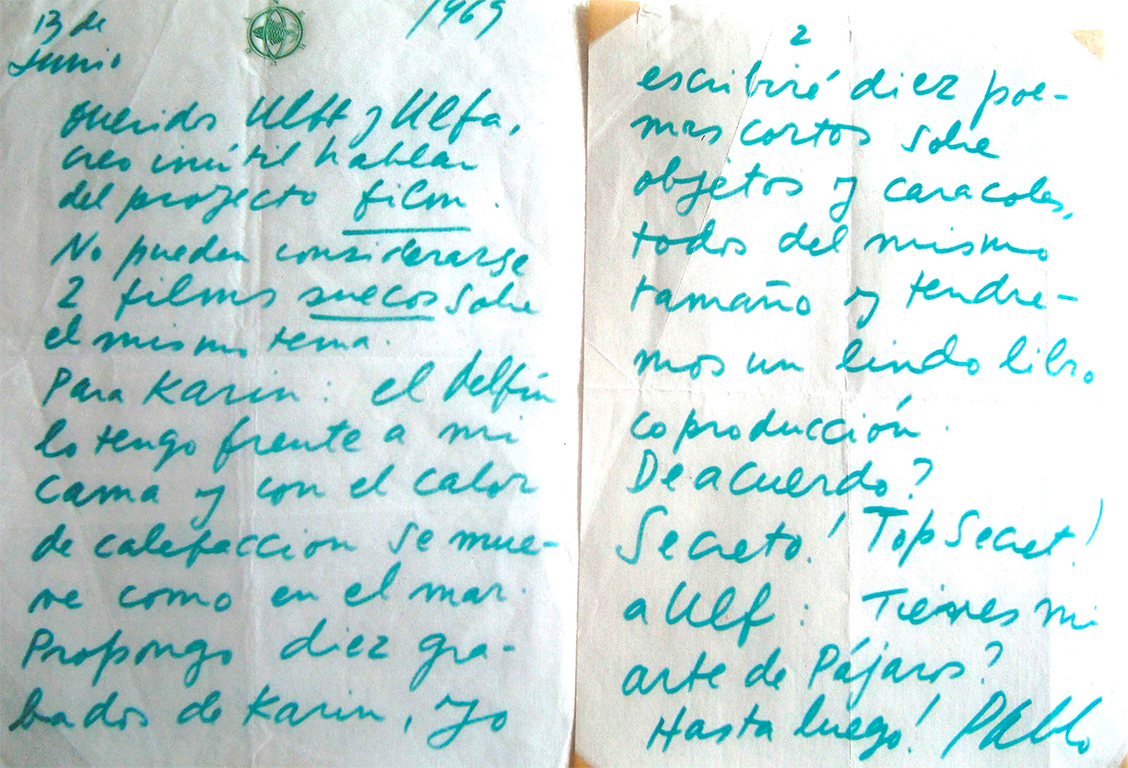 13 de
Junio
1969
Queridos Ulff y Ulfa,
creo inútil hablar
del proyecto film.
No pueden considerarse
2 films suecos sobre
el mismo tema.
Para Karin: el Delfín
lo tengo frente a mi
cama y con el calor
de calefaccion se mue-
ve como en el mar.
Propongo diez gra-
bados de Karin, yo
2
escribiré diez poe-
mas cortos sobre
objetos y caracoles,
todos del mismo
tamaño y tendre-
mos un lindo libro
coproducción.
De acuerdo?
Secreto! Top Secret!
a Ulf: Tienes mi
arte de Pájaros?
Hasta luego! Pablo